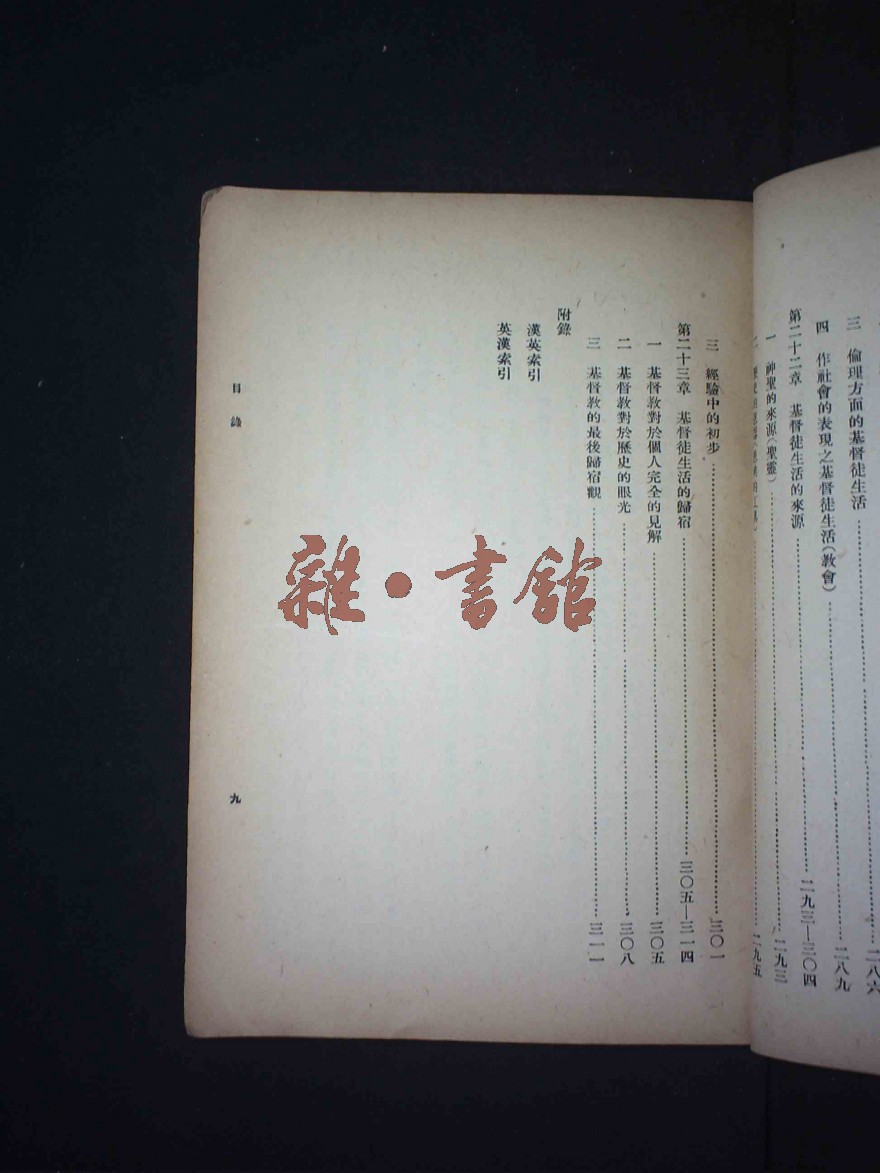 三　倫理方面的基督徒生活……二八六
四　作社會的表現之基督徒生活（教會）……二八九
第二十二章　基督徒生活的來源……二九三—三〇四
一　神聖的來源（聖靈）……二九三
二……二九五
三　經驗中的初步……三〇一
第二十三章　基督徒生活的歸宿……三〇五—三一四
一　基督教對於個人完全的見解……三〇五
二　基督教對於歷史的眼光……三〇八
三　基督教的最後歸宿觀……三一一
附錄
漢英索引
英漢索引
目錄
九
雜·書館